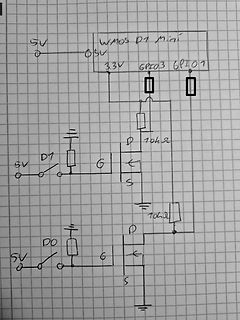 5V
WMOS D1 Mini
5V
3.3V GPIO3 GPIO1
D
10kΩ
5V D1
G
S
10kΩ
D
5V D0
G
S